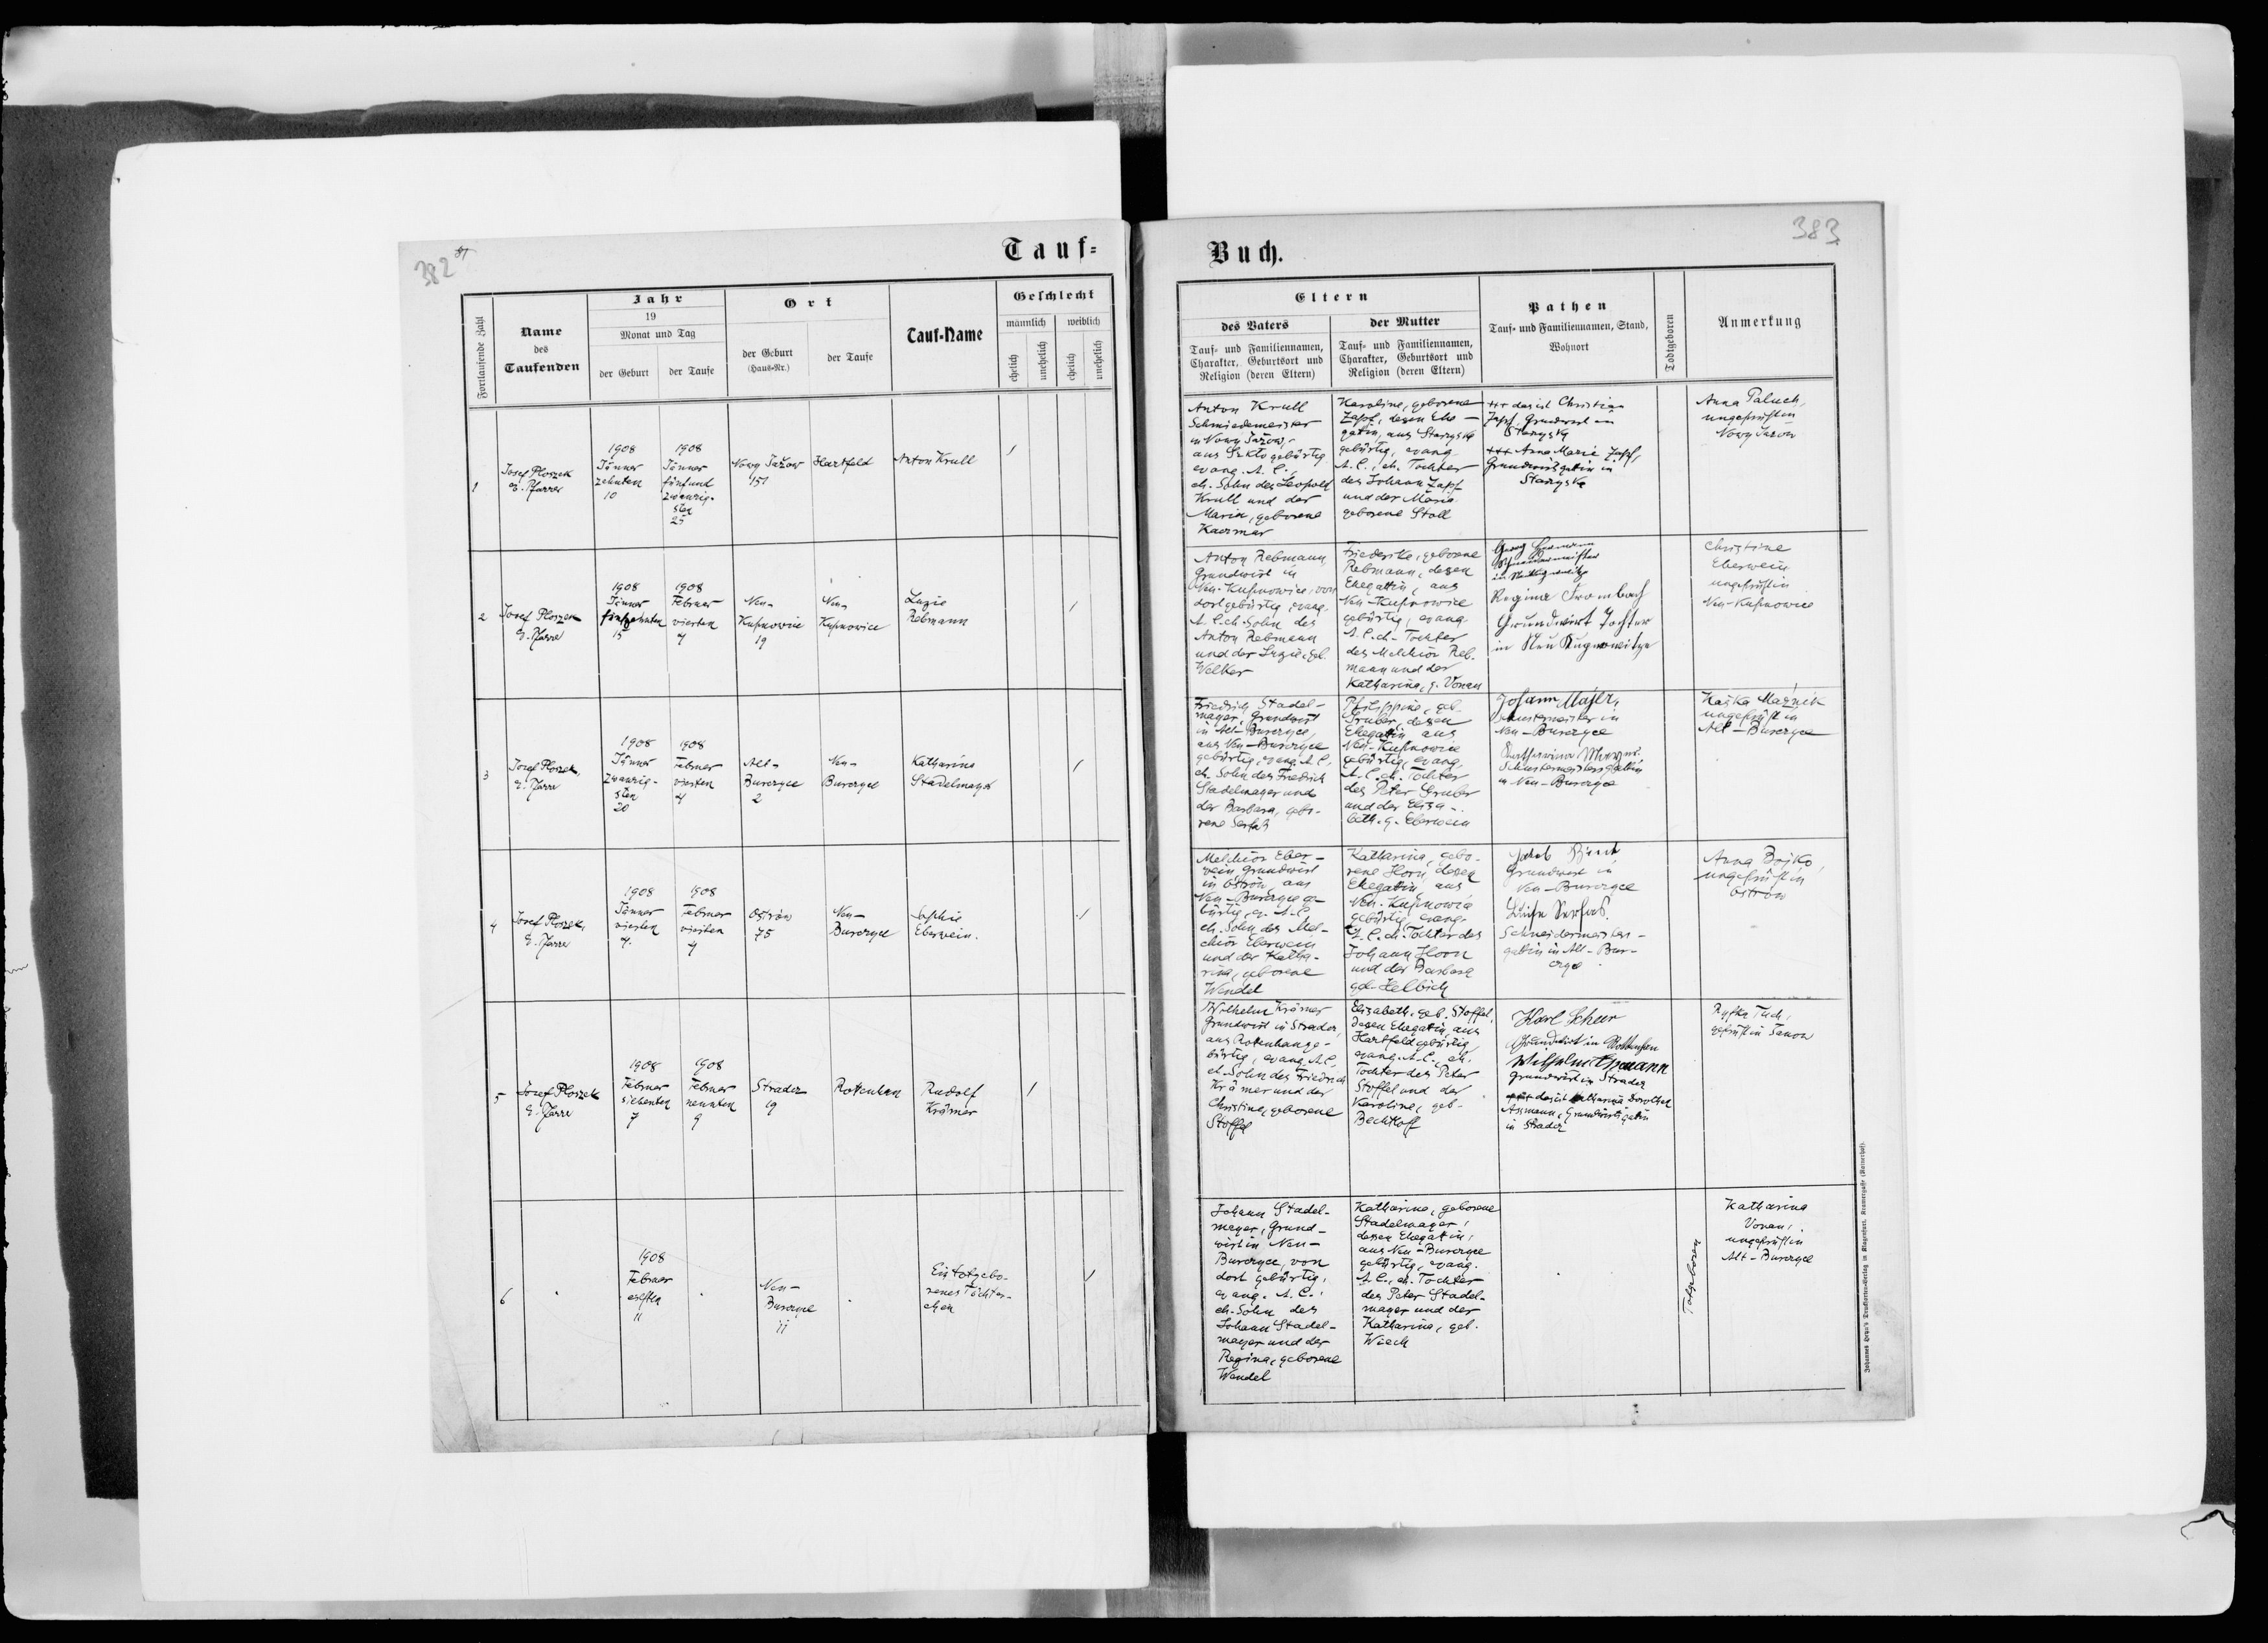 382
Tauf=
Fortlaufende Zahl
Name
des
Taufenden
Jahr
19
Monat und Tag
der Geburt
der Taufe
Ort
der Geburt
(Haus-Nr.)
der Taufe
Tauf-Name
Geschlecht
männlich
weiblich
ehelich
unehelich
ehelich
unehelich
1
Josef Ploszek
e. Pfarrer
1908
Jänner
zehnten
10
1908
Jänner
fünfund
zwanzig-
sten
25
Nowy Jażow
151
Hartfeld
Anton Krull
2
Josef Ploszek
e. Pfarrer
1908
Jänner
fünfzehnten
15
1908
Februar
vierten
4
Neu-
Kupnowice
19
Neu-
Kupnowice
Luzie
Rebmann
3
Josef Ploszek,
e. Pfarrer
1908
Jänner
zwanzig-
sten
20
1908
Februar
vierten
4
Alt-
Burczyce
2
Neu-
Burczyce
Katharina
Stadelmayer
4
Josef Ploszek,
e. Pfarrer
1908
Jänner
vierten
4.
1908
Februar
vierten
4
Ostrów
75
Neu-
Burczyce
Sophie
Eberwein.
5
Josef Ploszek
e. Pfarrer
1908
Februar
siebenten
7
1908
Februar
neunten
9
Stradcz
19
Rotenhan
Rudolf
Krämer
6
1908
Februar
elften
11
Neu-
Burczyce
11
Ein totgebo-
renes Töchter-
chen
383
Buch.
Eltern
des Vaters
Tauf- und Familiennamen,
Charakter, Geburtsort und
Religion (deren Eltern)
der Mutter
Tauf- und Familiennamen,
Charakter, Geburtsort und
Religion (deren Eltern)
Pathen
Tauf- und Familiennamen, Stand,
Wohnort
Todtgeboren
Anmerkung
Anton Krull
Schmiedemeister
in Nowy Jażow,
aus Szkło gebürtig
evang. A. C.,
eh. Sohn des Leopold
Krull und der
Maria, geborene
Kaczmar
Karoline, geborene
Zapf, dessen Ehe-
gatin, aus Staryska
gebürtig, evang.
A. C., eh. Tochter
des Johann Zapf
und der Maria
geborene Stoll
+++ das ist Christian
Zapf, Grundwirt in
Staryska
+++ Anna Marie Zapf,
Grundwirtsgatin in
Staryska
Anna Paluch,
ungeprüft in
Nowy Jażów
Anton Rebmann,
Grundwirt in
Neu-Kupnowice, von
dort gebürtig, evang.
A. C. eh. Sohn des
Anton Rebmann
und der Luzie, geb.
Welker
Friederike, geborene
Rebmann, dessen
Ehegattin, aus
Neu-Kupnowice
gebürtig, evang.
A. C. eh. Tochter
des Melchior Reb-
mann und der
Katharina, g. Vonau
Georg
Regina Trombach
Grundwirt Tochter
in Neu Kugnowitze
Christine
Eberwein
ungeprüft in
Neu-Kupnowice
Friedrich Stadel-
mayer, Grundwirt
in Alt-Burczyce,
aus Neu-Burczyce
gebürtig, evang. A. C.
eh. Sohn des Friedrich
Stadelmayer und
der Barbara, gebo-
rene Serfas
Philippine, geb.
Gruber, dessen
Ehegatin aus
Neu-Kupnowice
gebürtig, evang.
A. C. eh. Tochter
des Peter Gruber
und der Elisa-
beth. g. Eberwein
Johann Majer,
Schustermeister in
Neu-Burczyce
Katharina Mayer
Schustermeistersgattin
in Neu-Burczyce
Kaśka Maźnik
ungeprüft in
Alt-Burczyce
Melchior Eber-
wein Grundwirt
in Ostrów, aus
Neu-Burczyce ge-
bürtig, e. A. C.
eh. Sohn des Mel-
chior Eberwein
und der Katha-
rina, geborene
Wendel
Katharina, gebo-
rene Horn dessen
Ehegattin, aus
Neu-Kupnowice
gebürtig, evang.
A. C. eh. Tochter des
Johann Horn
und der Barbara
geb. Helbich
Jakob
Grundwirt in
Neu-Burczyce
Luise Serfas.
Schneidermeister-
gattin in Alt-Bur-
czyce
Anna Bojko,
ungeprüft in
Ostrów
Wilhelm Krämer
Grundwirt in Stradcz,
aus Rotenhan ge-
bürtig, evang. A. C.
eh. Sohn des Friedrich
Krämer und der
Christine, geborene
Stoffel
Elisabeth, geb. Stoffel,
dessen Ehegatin, aus
Hartfeld gebürtig,
evang. A. C., eh.
Tochter des Peter
Stoffel und der
Karoline, geb.
Bechtloff
Karl Scheer
Grundwirt in Rottenhan
Wilhelm Assmann
Grundwirt in Stradcz
+++ das ist Katharina Dorothea
Assmann, Grundwirtsgatin
in Stradcz
Ryfka Tuch,
geprüft in Janow
Johann Stadel-
mayer, Grund-
wirt in Neu-
Burczyce, von
dort gebürtig,
evang. A. C.,
eh. Sohn des
Johann Stadel-
mayer und der
Regina, geborene
Wendel
Katharina, geborene
Stadelmayer,
dessen Ehegatin,
aus Neu-Burczyce
gebürtig, evang.
A. C., eh. Tochter
des Peter Stadel-
mayer und der
Katharina, geb.
Wiech
Totgeboren
Katharina
Vonau,
ungeprüft in
Alt-Burczyce